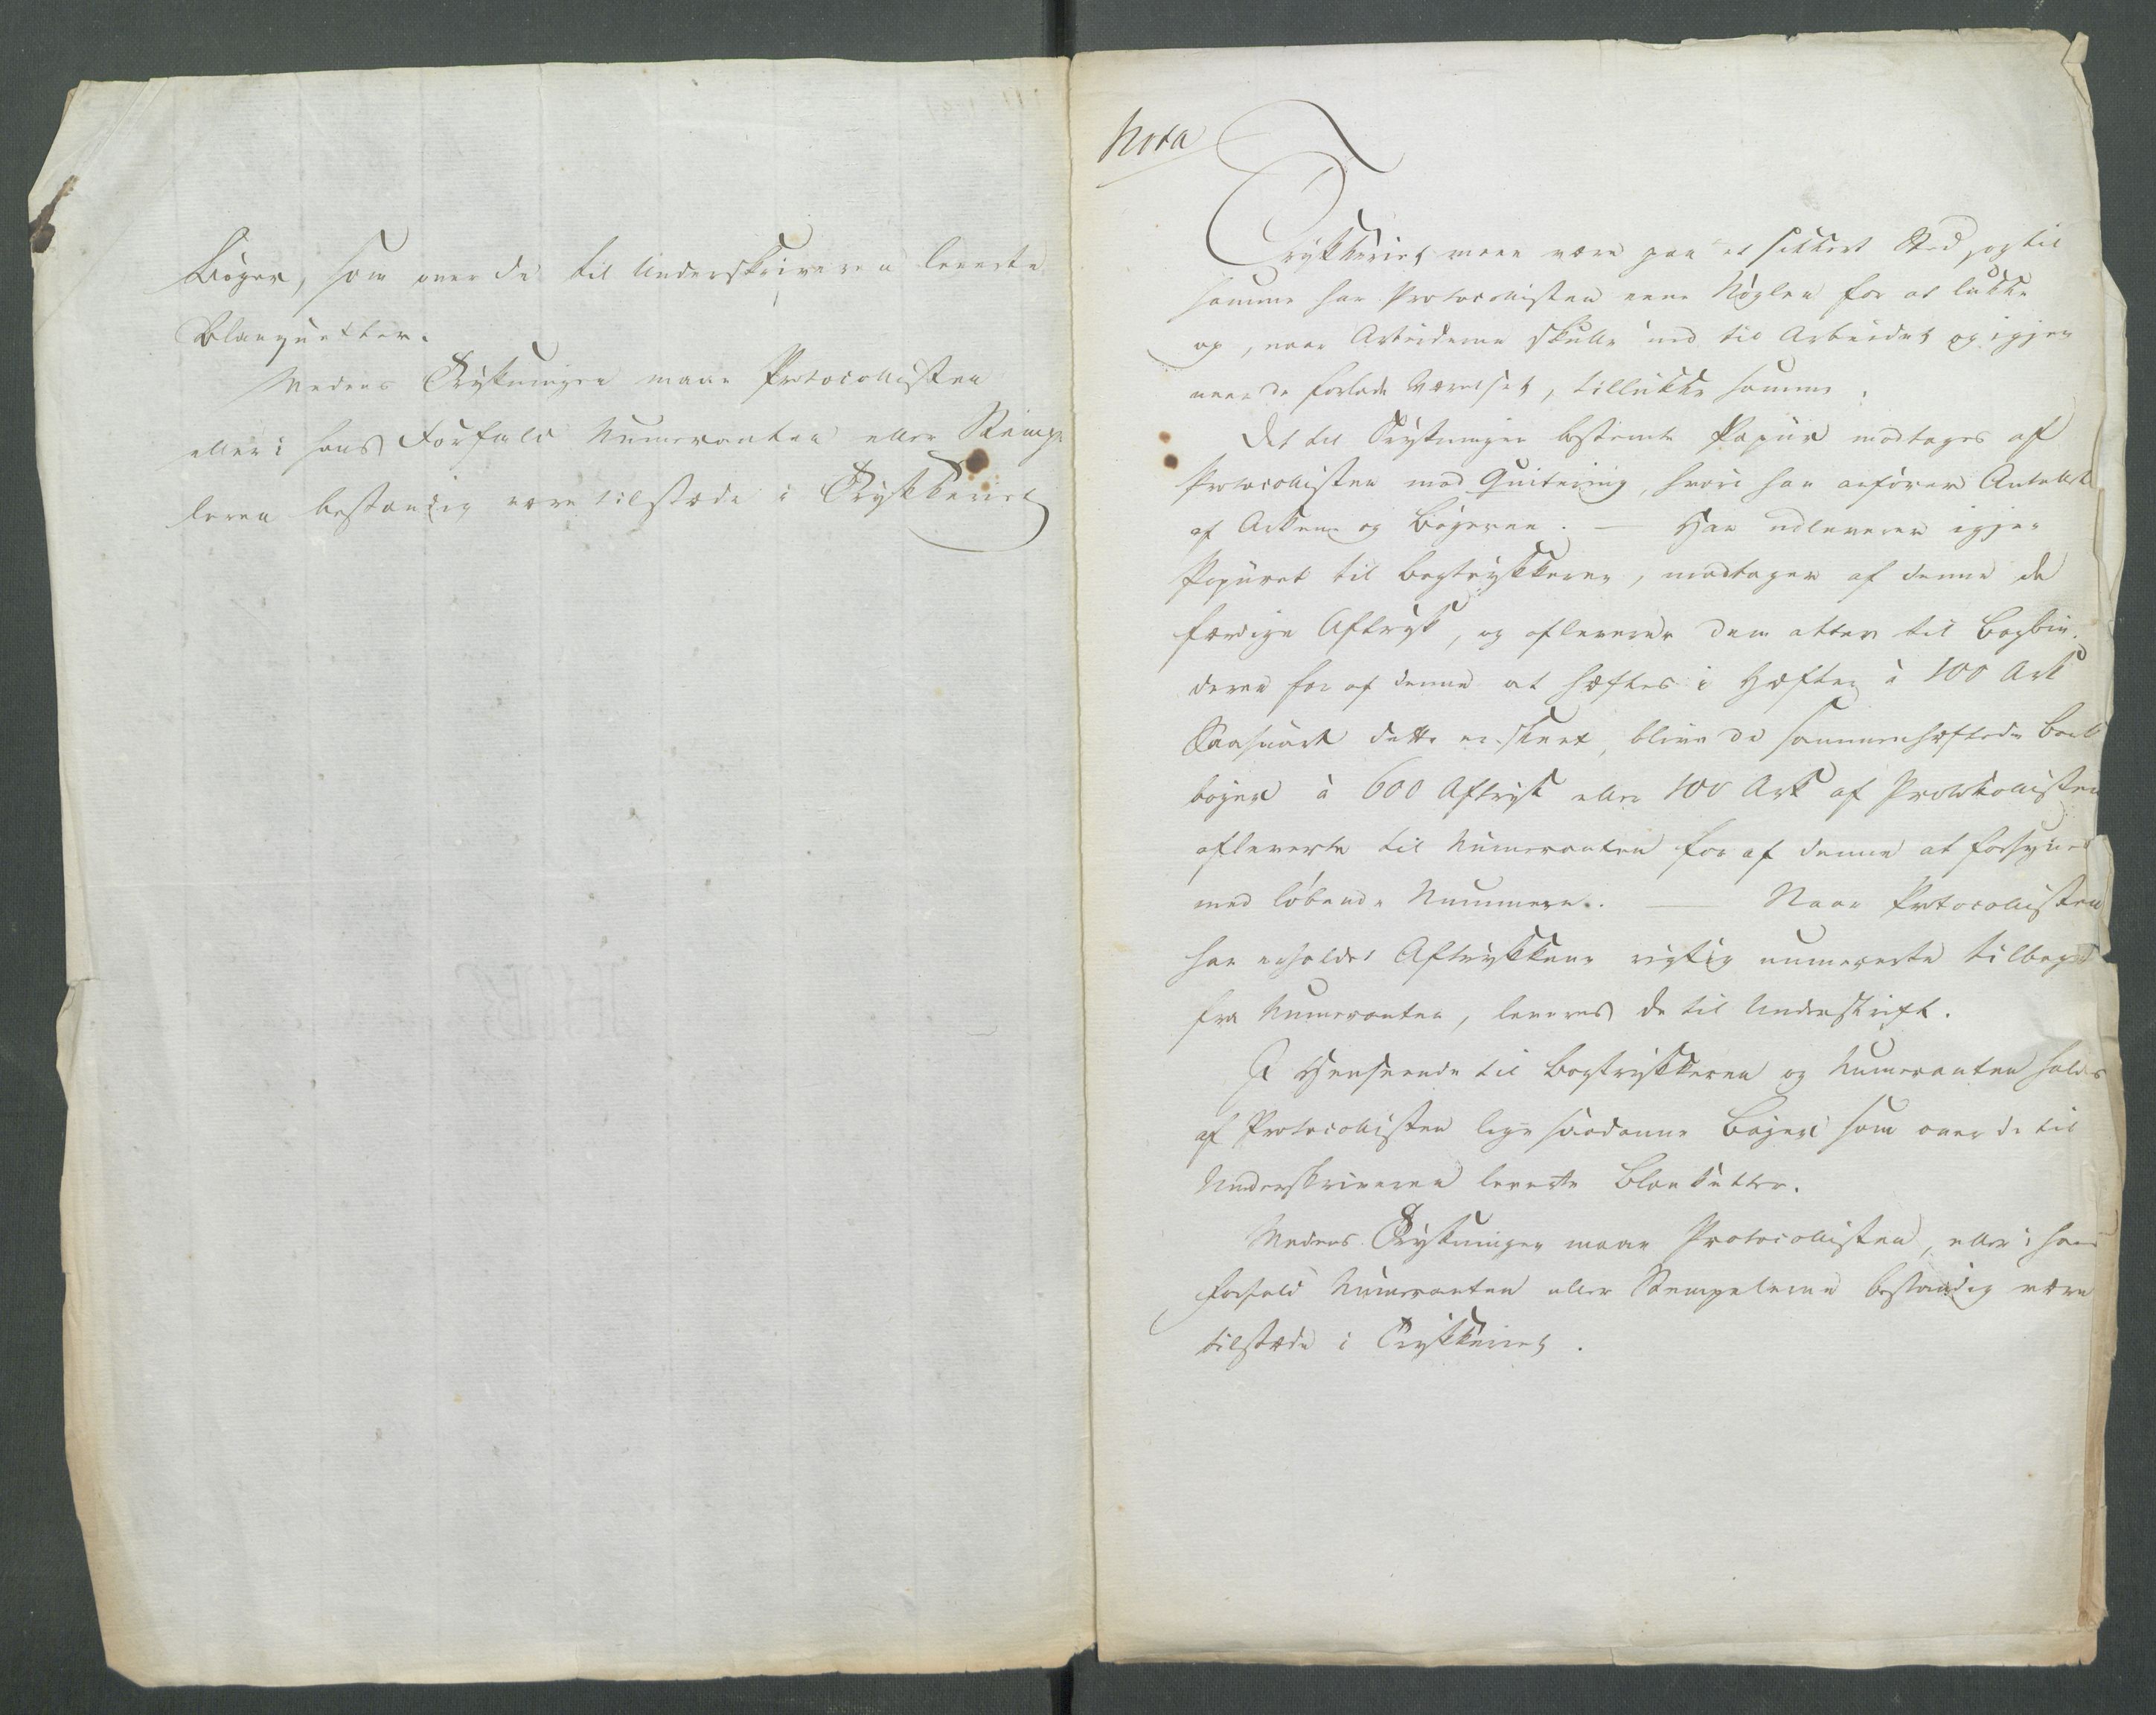 Bøger, som over de til Underskriveren leverte
Blanquetter.
Medens Trykningen maae Protocollisten
eller i hans Forfald Numeranten eller Stemp-
leren bestandig være tilstæde i Trykkeriet
Nota
Trykkeriet maae være paa et sikkert Sted, og til
samme har Protocollisten ene Nøglen for at lukke
op, naar Arbeiderne skulle ind til Arbeidet og igjen
naar de forlade Værelset, tillukke samme.
Det til Trykningen bestemte Papiir modtages af
Protocollisten mod Quitering, hvori han anfører Antallet
af Arkene og Bøgerne. — Han udleverer igjen
Papiiret til Bogtrykkeren, modtager af denne de
færdige Aftryk, og afleverer dem atter til Bogbin-
deren for af denne at hæftes i Hæfter à 100 Ark
Saasnart dette er skeet, blive de sammenhæftede
bøger à 600 Aftryk eller 100 Ark af Protokollisten
afleverte til Numeranten for af denne at forsynes
med løbende Nummere. — Naar Protocollisten
har erholdet Aftrykkene rigtig numererte tilbage
fra Numeranten, leveres de til Underskrift.
I Henseende til Bogtrykkeren og Numeranten holdes
af Protocollisten lige saadanne Bøger som over de til
Underskriveren leverte Blanketter.
Medens Trykningen maae Protocollisten, eller i hans
Forfald Numeranten eller Stempeleren bestandig være
tilstæde i Trykkeriet.